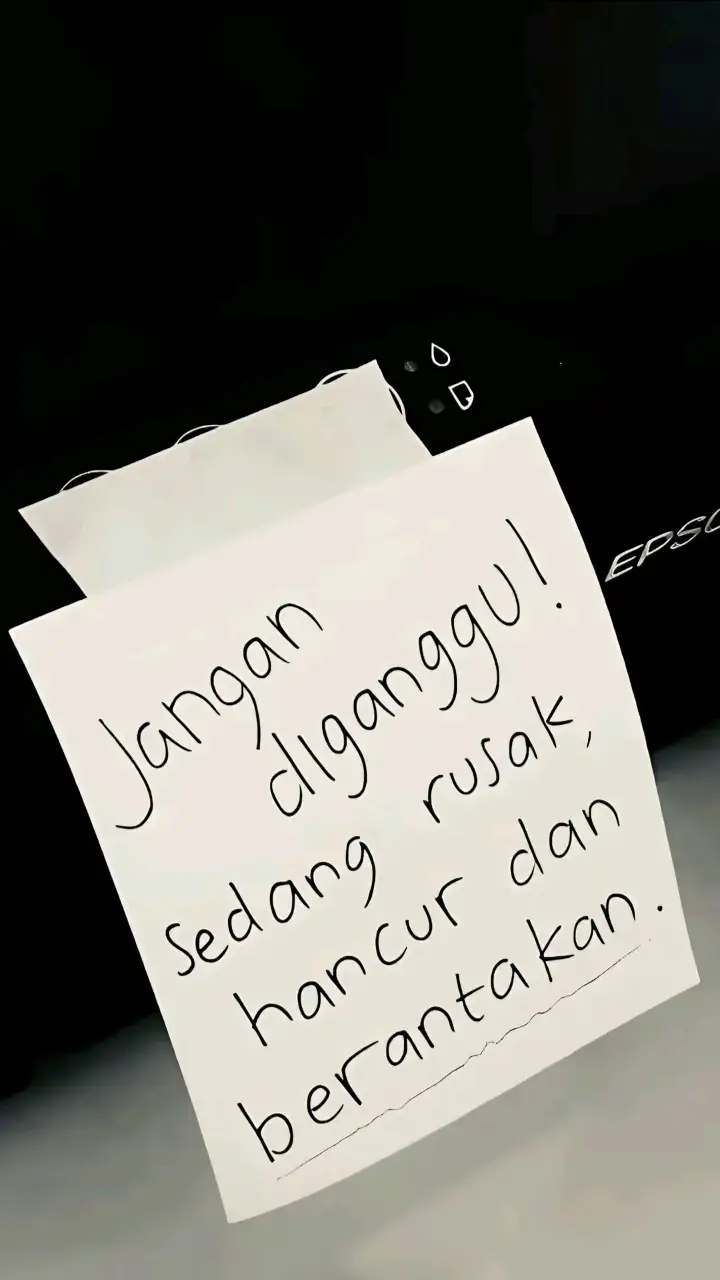 EPSO
Jangan
diganggu!
sedang rusak,
hancur dan
berantakan.